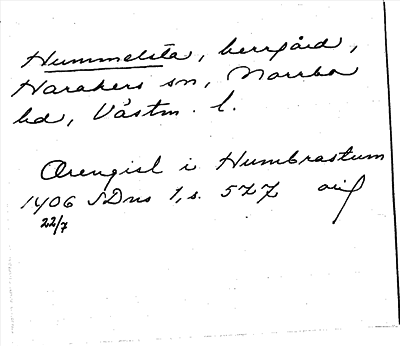 Hummelsta, herrgård,
Harakers sn, Norrbo
hd, Västm. l.
Ørengisl i Humbrastum
1406 SDns 1, s. 577 orig
22/7